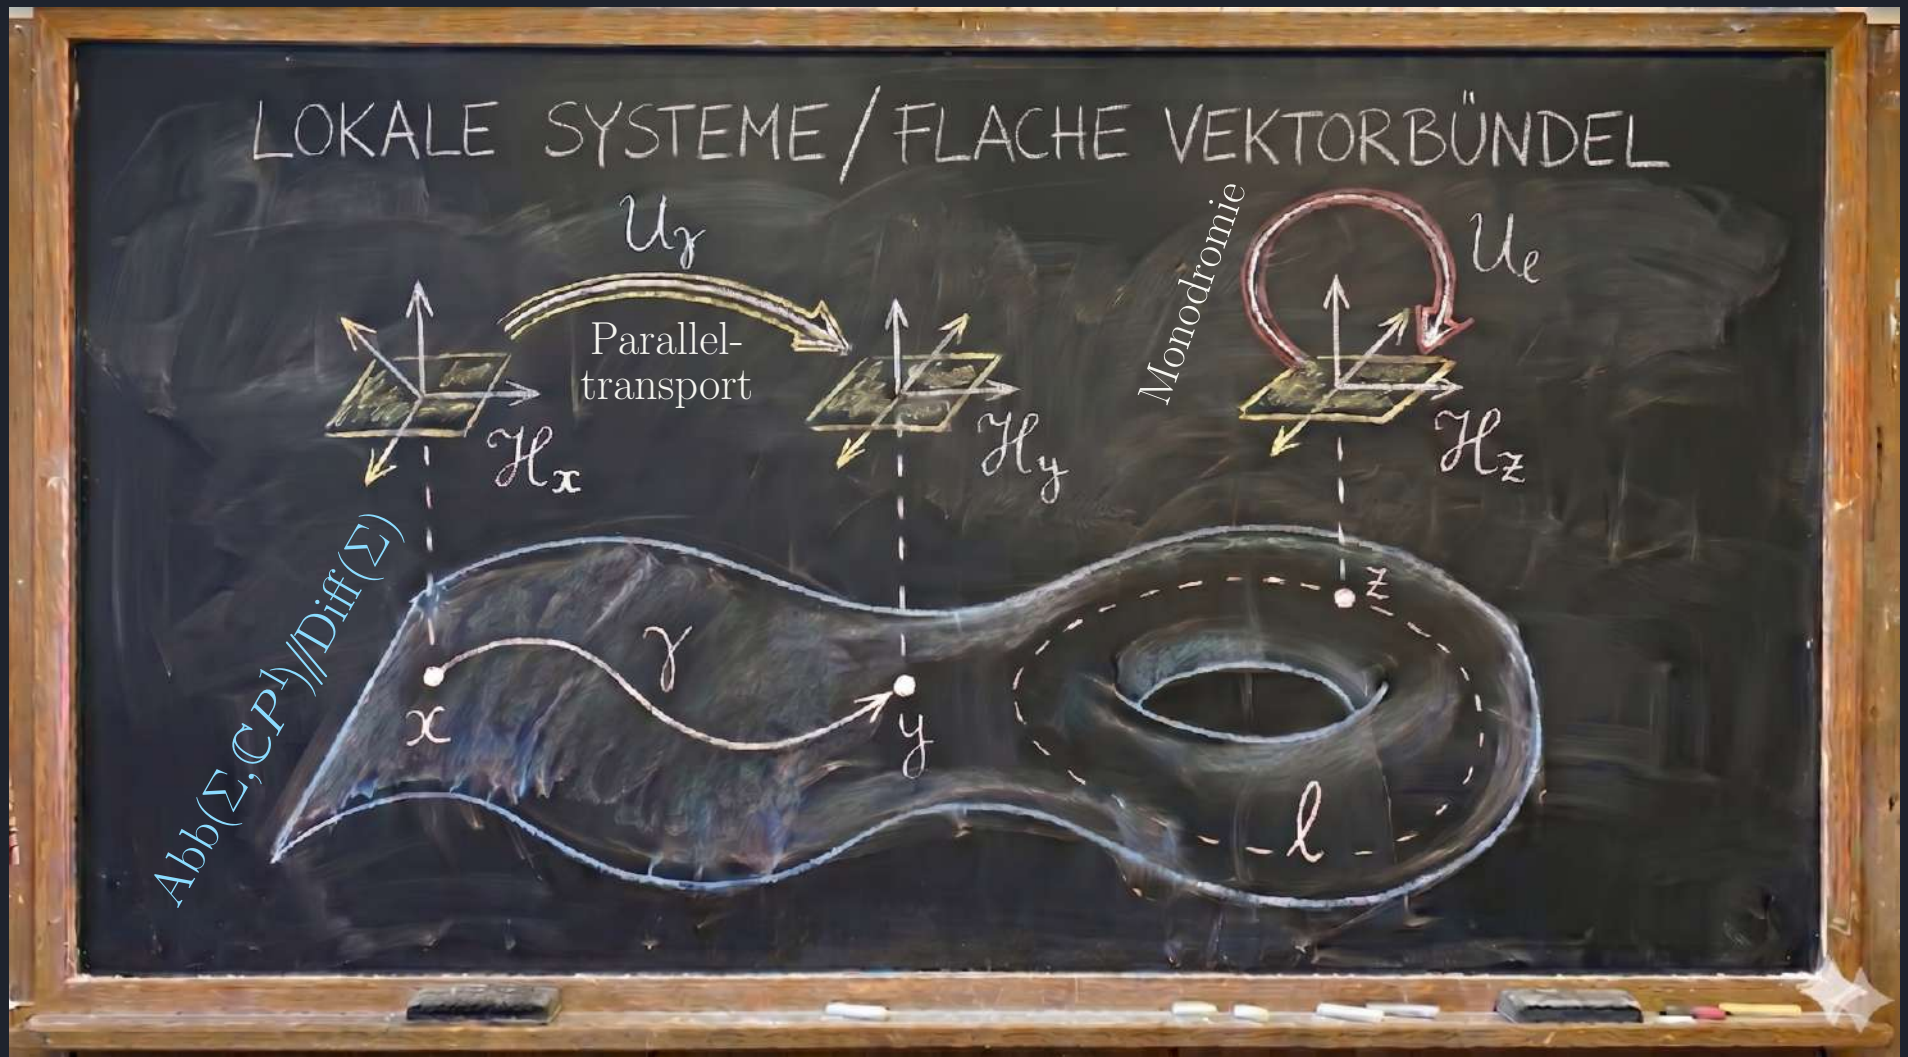 LOKALE SYSTEME/FLACHE VEKTORBÜNDEL
U_γ
Parallel-
transport
Monodromie
U_ℓ
ℋ_x
ℋ_y
ℋ_z
Abb(Σ,ℂP¹)//Diff(Σ)
x
γ
y
z
ℓ